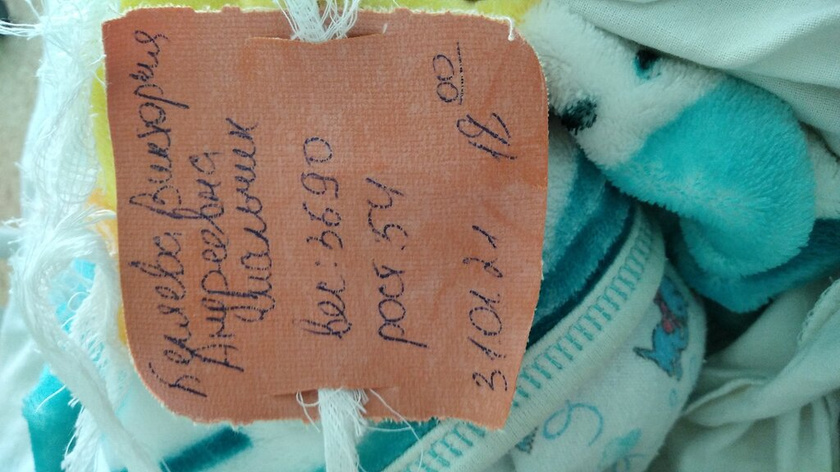 Беляева Виктория
Андреевна
Мальчик
Вес: 3690
рост: 54
310121 12 00